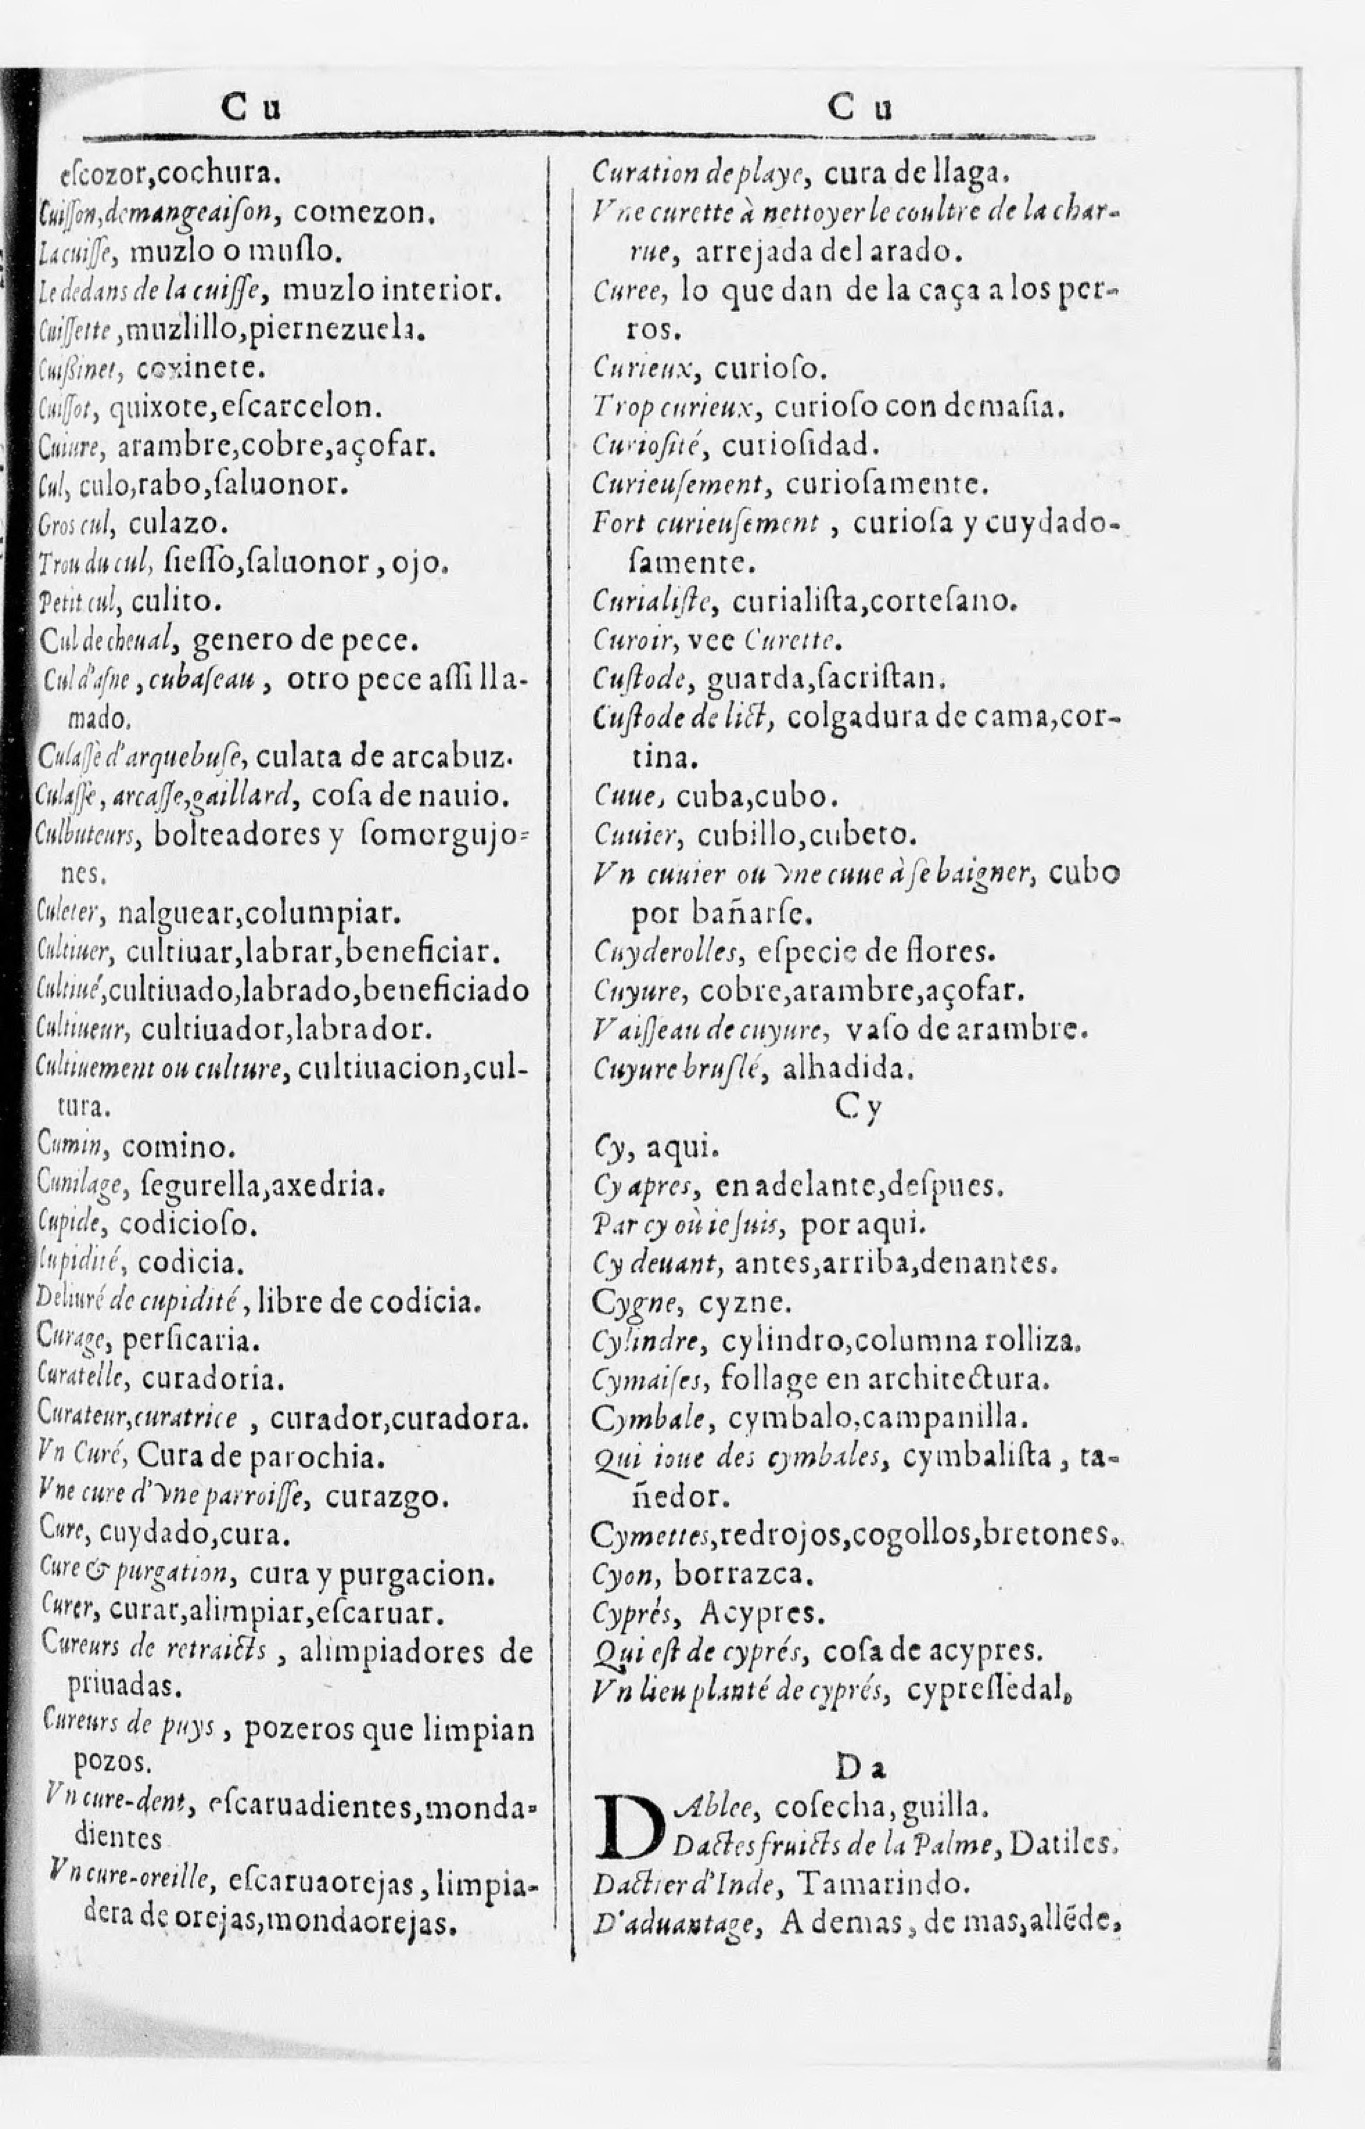 C u
eſcozor,cochura.
Cuiſſon,demangeaiſon, comezon.
La cuiſſe, muzlo o muſlo.
Le dedans de la cuiſſe, muzlo interior.
Cuiſſette ,muzlillo,piernezuela.
Cuiſsinet, coxinete.
Cuiſſot, quixote,eſcarcelon.
Cuiure, arambre,cobre,açofar.
Cul, culo,rabo,ſaluonor.
Gros cul, culazo.
Trou du cul, ſieſſo,ſaluonor , ojo.
Petit cul, culito.
Cul de cheual, genero de pece.
Cul d'aſne , cubaſeau , otro pece aſſi lla-
mado.
Culaſſe d'arquebuſe, culata de arcabuz.
Culaſſe, arcaſſe,gaillard, coſa de nauio.
Culbuteurs, bolteadores y ſomorgujo-
nes.
Culeter, nalguear,columpiar.
Cultiuer, cultiuar,labrar,beneficiar.
Cultiué,cultiuado,labrado,beneficiado
Cultiueur, cultiuador,labrador.
Cultiuement ou culture, cultiuacion,cul-
tura.
Cumin, comino.
Cunilage, ſegurella,axedria.
Cupide, codicioſo.
Cupidité, codicia.
Deliuré de cupidité, libre de codicia.
Curage, perſicaria.
Curatelle, curadoria.
Curateur,curatrice , curador,curadora.
Vn Curé, Cura de parochia.
Vne cure d'vne parroiſſe, curazgo.
Cure, cuydado,cura.
Cure & purgation, cura y purgacion.
Curer, curar,alimpiar,eſcaruar.
Cureurs de retraicts , alimpiadores de
priuadas.
Cureurs de puys , pozeros que limpian
pozos.
Vn cure-dent, eſcaruadientes,monda-
dientes
Vn cure-oreille, eſcaruaorejas, limpia-
dera de orejas,mondaorejas.
C u
Curation de playe, cura de llaga.
Vne curette à nettoyer le coultre de la char-
rue, arrejada del arado.
Curee, lo que dan de la caça a los per-
ros.
Curieux, curioſo.
Trop curieux, curioſo con demaſia.
Curioſité, curioſidad.
Curieuſement, curioſamente.
Fort curieuſement , curioſa y cuydado-
ſamente.
Curialiſte, curialiſta,corteſano.
Curoir, vee Curette.
Cuſtode, guarda,ſacriſtan.
Cuſtode de lict, colgadura de cama,cor-
tina.
Cuue, cuba,cubo.
Cuuier, cubillo,cubeto.
Vn cuuier ou vne cuue à ſe baigner, cubo
por bañarſe.
Cuyderolles, eſpecie de flores.
Cuyure, cobre,arambre,açofar.
Vaiſſeau de cuyure, vaſo de arambre.
Cuyure bruſlé, alhadida.
C y
Cy, aqui.
Cy apres, en adelante,deſpues.
Par cy où ie ſuis, por aqui.
Cy deuant, antes,arriba,denantes.
Cygne, cyzne.
Cylindre, cylindro,columna rolliza.
Cymaiſes, follage en architectura.
Cymbale, cymbalo,campanilla.
Qui ioue des cymbales, cymbaliſta , ta-
ñedor.
Cymettes,redrojos,cogollos,bretones.
Cyon, borrazca.
Cyprés, Acypres.
Qui eſt de cyprés, coſa de acypres.
Vn lieu planté de cyprés, cypreſſedal.
D a
DAblee, coſecha, guilla.
Dactes fruicts de la Palme, Datiles.
Dactier d'Inde, Tamarindo.
D'aduantage, A demas, de mas,allẽde,